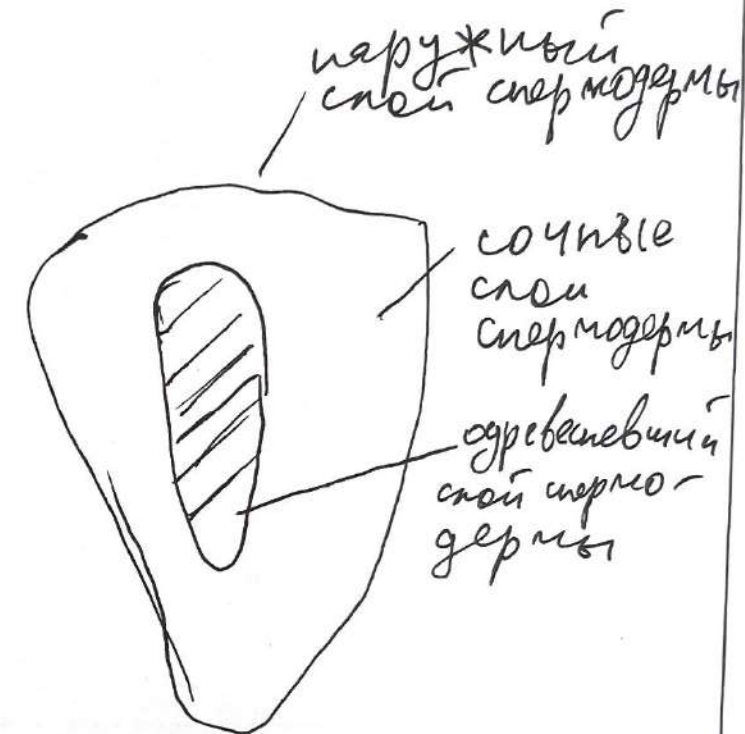 наружный
слой спермодермы
сочные
слои
спермодермы
одревесневший
слой спермо-
дермы